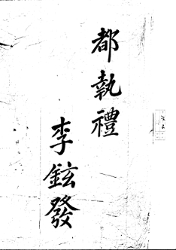 都執禮
李鉉發